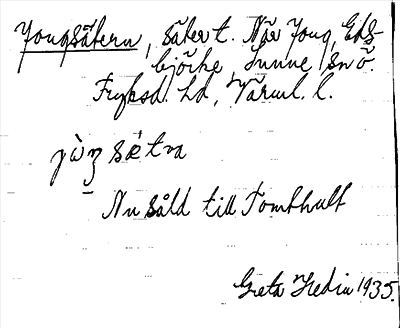 Youngsätern, säter t. När Young, Eks-
björke, Sunne sn ö.
Fryksd. hd, Värml. l.
Nu såld till Tomthult
Greta Hedin 1935.